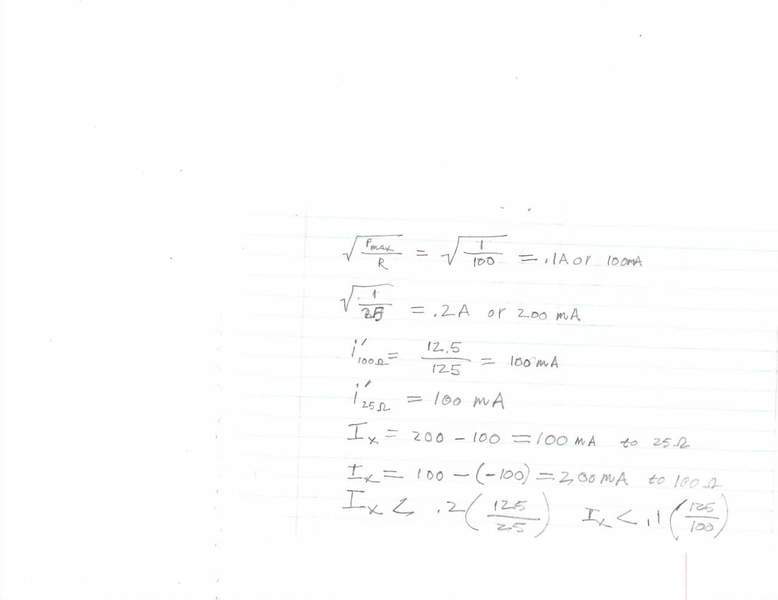 √(Pmax/R) = √(1/100) = .1A or 100mA
√(1/25) = .2A or 200 mA
i'100Ω = 12.5/125 = 100mA
i'25Ω = 100 mA
Ix = 200 - 100 = 100 mA to 25Ω
Ix = 100 - (-100) = 200mA to 100Ω
Ix < .2(125/25) Ix < .1(125/100)